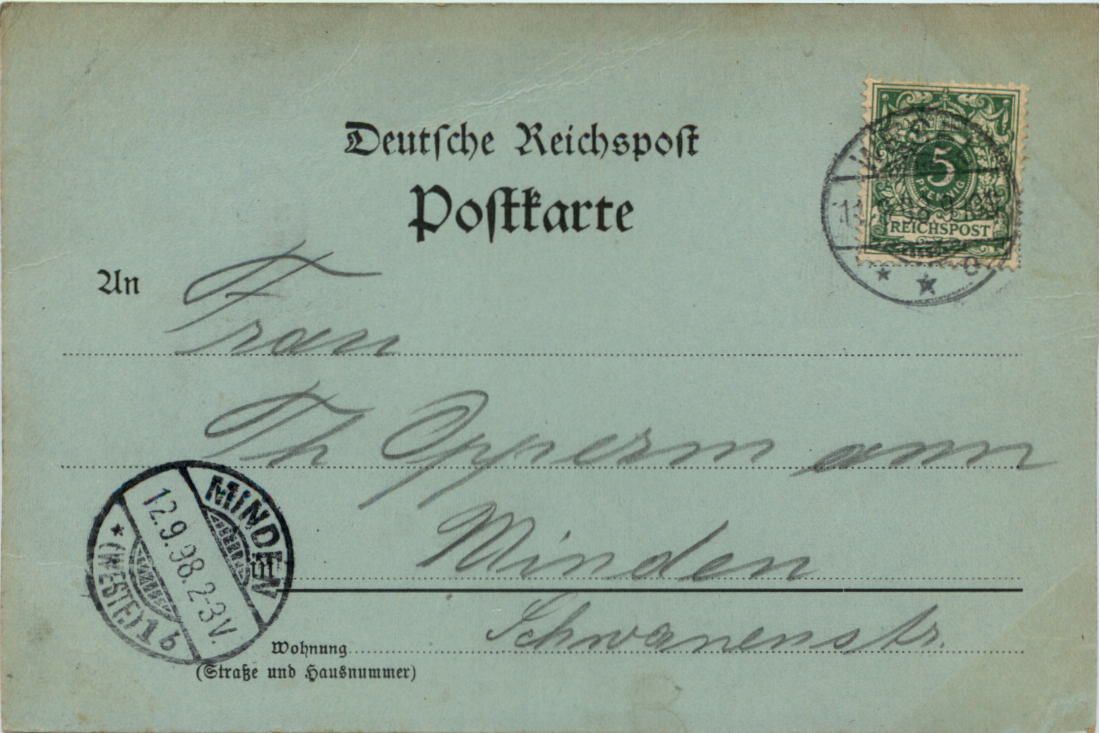 Deutsche Reichspost
Postkarte
5
PFENNIG
REICHSPOST
An Frau
Th Oppermann
Minden
in
Schwanenstr.
Wohnung
(Straße und Hausnummer)
MINDEN
12.9.98.2-3V.
* (WESTF.) 1 b